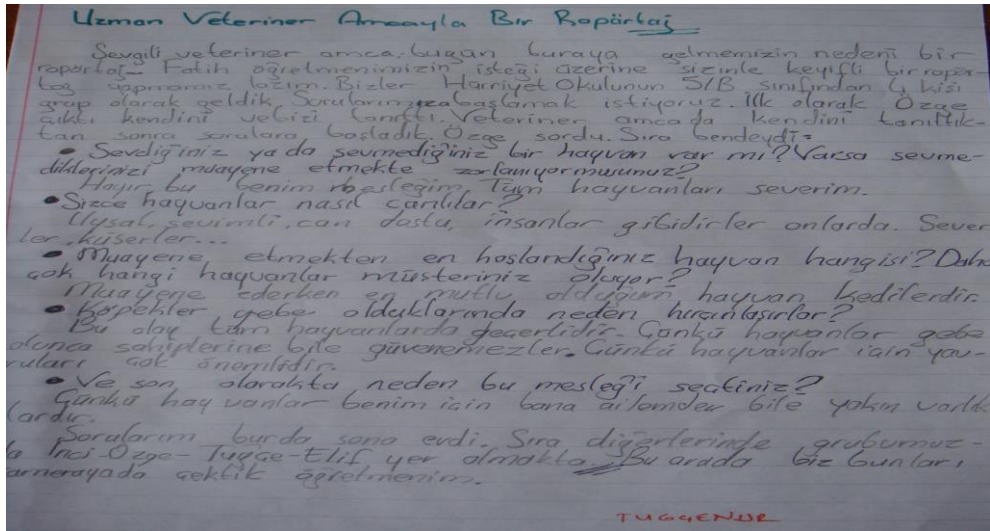 Uzman Veteriner Amcayla Bir Ropörtaj
Sevgili veteriner amca, bugün buraya gelmemizin nedeni bir
ropörtaj- Fatih öğretmenimizin isteği üzerine sizinle keyifli bir ropör-
taj yapmamız lazım. Bizler Hürriyet Okulunun 5/B sınıfından 4 kişi
grup olarak geldik. Sorularımıza başlamak istiyoruz. İlk olarak Özge
çıktı kendini ve bizi tanıttı. Veteriner amca da kendini tanıttık-
tan sonra sorulara başladık. Özge sordu. Sıra bendeydi:
• Sevdiğiniz ya da sevmediğiniz bir hayvan var mı? Varsa sevme-
diklerinizi muayene etmekte zorlanıyormusunuz?
Hayır, bu benim mesleğim. Tüm hayvanları severim.
• Sizce hayvanlar nasıl canlılar?
Uysal, sevimli, can dostu, insanlar gibidirler onlarda. Sever
ler, küserler...
• Muayene etmekten en hoşlandığınız hayvan hangisi? Daha
çok hangi hayvanlar müşteriniz oluyor?
Muayene ederken en mutlu olduğum hayvan kedilerdir.
• Köpekler gebe olduklarında neden hırçınlaşırlar?
Bu olay tüm hayvanlarda geçerlidir. Çünkü hayvanlar gebe
olunca sahiplerine bile güvenemezler. Çünkü hayvanlar için yav-
ruları çok önemlidir.
• Ve son olarakta neden bu mesleği seçtiniz?
Çünkü hayvanlar benim için bana ailemden bile yakın varlık
lardır.
Sorularım burda sona erdi. Sıra diğerlerinde grubumuz-
da İnci-Özge-Tuğçe-Elif yer almakta. Bu arada biz bunları
kamerayada çektik öğretmenim.
TUĞÇENUR